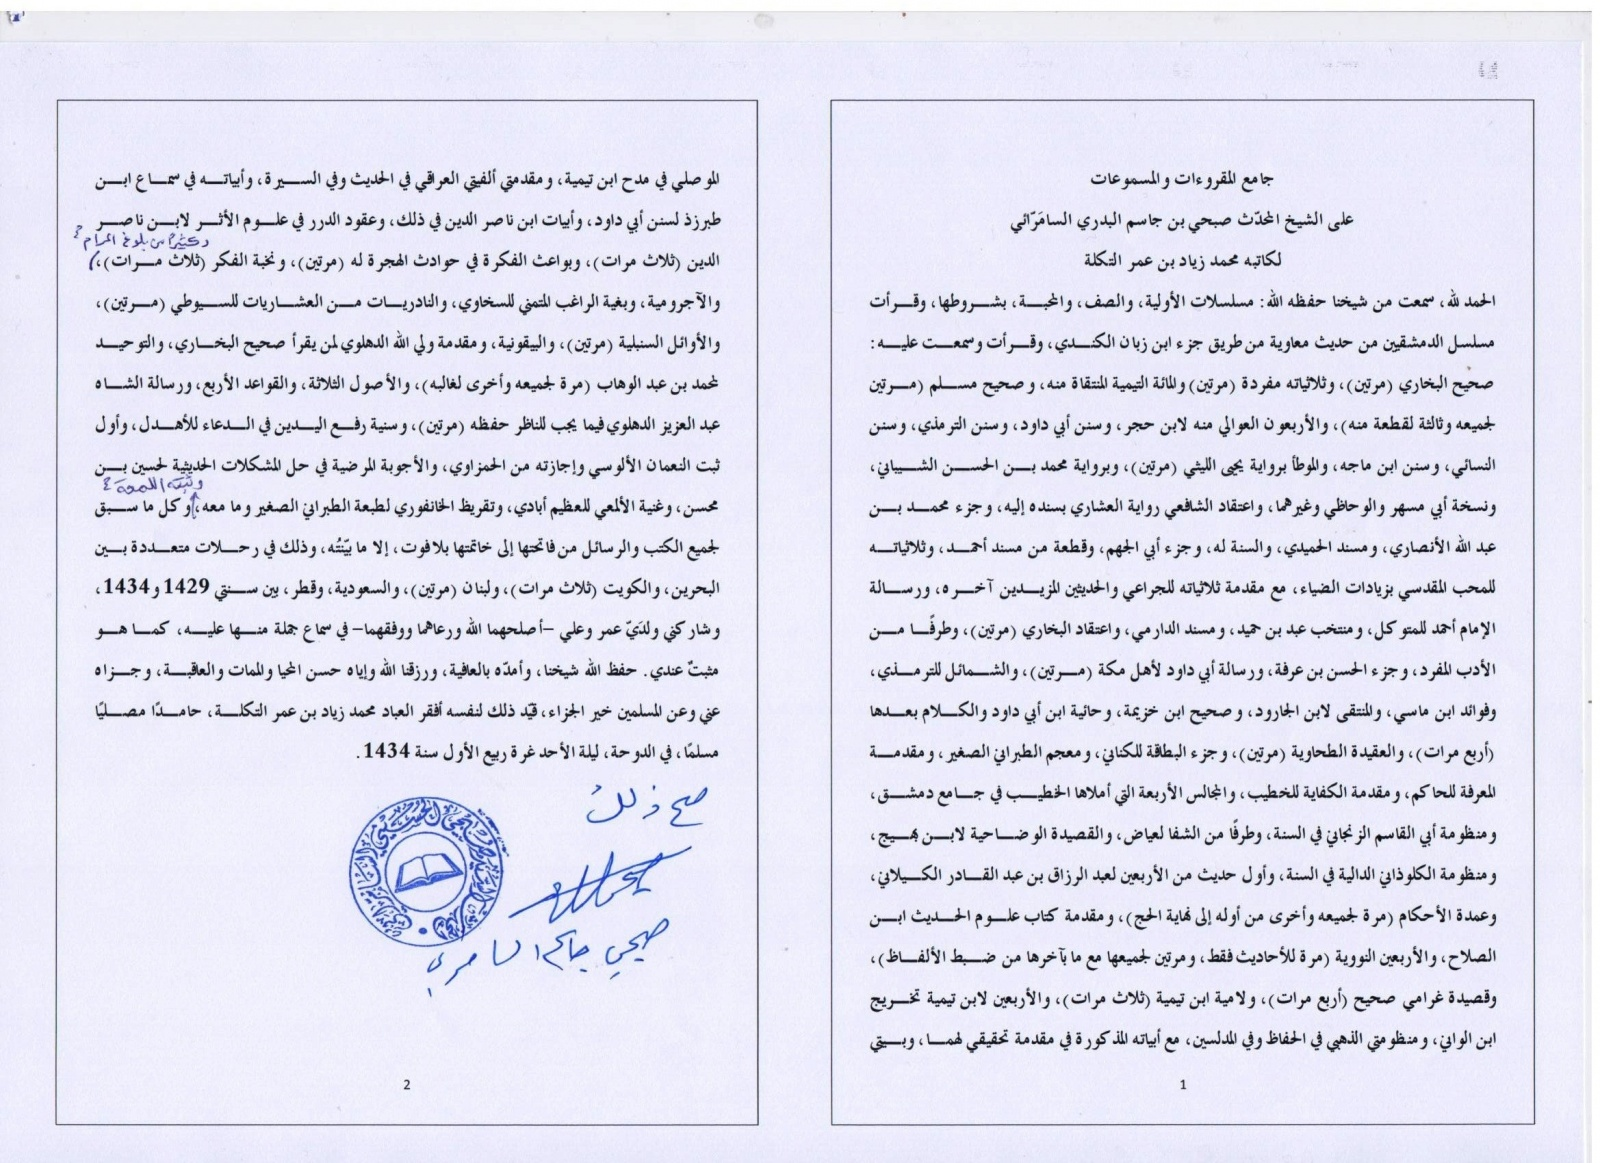 جامع المقروءات والمسموعات
على الشيخ المحدّث صبحي بن جاسم البدري السامَرّائي
لكاتبه محمد زياد بن عمر التكلة
الحمد لله، سمعت من شيخنا حفظه الله: مسلسلات الأولية، والصف، والمحبة، بشروطها، وقرأت
مسلسل الدمشقيين من حديث معاوية من طريق جزء ابن زبان الكندي، وقرأت وسمعت عليه:
صحيح البخاري (مرتين)، وثلاثياته مفردة (مرتين) والمائة التيمية المنتقاة منه، وصحيح مسلم (مرتين
لجميعه وثالثة لقطعة منه)، والأربعون العوالي منه لابن حجر، وسنن أبي داود، وسنن الترمذي، وسنن
النسائي، وسنن ابن ماجه، والموطأ برواية يحيى الليثي (مرتين)، وبرواية محمد بن الحسن الشيباني،
ونسخة أبي مسهر والوحاظي وغيرهما، واعتقاد الشافعي رواية العشاري بسنده إليه، وجزء محمد بن
عبد الله الأنصاري، ومسند الحميدي، والسنة له، وجزء أبي الجهم، وقطعة من مسند أحمد، وثلاثياته
للمحب المقدسي بزيادات الضياء، مع مقدمة ثلاثياته للجراعي والحديثين المزيدين آخره، ورسالة
الإمام أحمد للمتوكل، ومنتخب عبد بن حميد، ومسند الدارمي، واعتقاد البخاري (مرتين)، وطرفًا من
الأدب المفرد، وجزء الحسن بن عرفة، ورسالة أبي داود لأهل مكة (مرتين)، والشمائل للترمذي،
وفوائد ابن ماسي، والمنتقى لابن الجارود، وصحيح ابن خزيمة، وحائية ابن أبي داود والكلام بعدها
(أربع مرات)، والعقيدة الطحاوية (مرتين)، وجزء البطاقة للكناني، ومعجم الطبراني الصغير، ومقدمة
المعرفة للحاكم، ومقدمة الكفاية للخطيب، والمجالس الأربعة التي أملاها الخطيب في جامع دمشق،
ومنظومة أبي القاسم الزنجاني في السنة، وطرفًا من الشفا لعياض، والقصيدة الوضاحية لابن بهيج،
ومنظومة الكلوذاني الدالية في السنة، وأول حديث من الأربعين لعبد الرزاق بن عبد القادر الكيلاني،
وعمدة الأحكام (مرة لجميعه وأخرى من أوله إلى نهاية الحج)، ومقدمة كتاب علوم الحديث ابن
الصلاح، والأربعين النووية (مرة للأحاديث فقط، ومرتين لجميعها مع ما بآخرها من ضبط الألفاظ)،
وقصيدة غرامي صحيح (أربع مرات)، ولامية ابن تيمية (ثلاث مرات)، والأربعين لابن تيمية تخريج
ابن الواني، ومنظومتي الذهبي في الحفاظ وفي المدلسين، مع أبياته المذكورة في مقدمة تحقيقي لهما، وبيتي
1
الموصلي في مدح ابن تيمية، ومقدمتي ألفيتي العراقي في الحديث وفي السيرة، وأبياته في سماع ابن
طبرزذ لسنن أبي داود، وأبيات ابن ناصر الدين في ذلك، وعقود الدرر في علوم الأثر لابن ناصر
وكثيرًا من بلوغ المرام
الدين (ثلاث مرات)، وبواعث الفكرة في حوادث الهجرة له (مرتين)، ونخبة الفكر (ثلاث مرات)،
والآجرومية، وبغية الراغب المتمني للسخاوي، والنادريات من العشاريات للسيوطي (مرتين)،
والأوائل السنبلية (مرتين)، والبيقونية، ومقدمة ولي الله الدهلوي لمن يقرأ صحيح البخاري، والتوحيد
لمحمد بن عبد الوهاب (مرة لجميعه وأخرى لغالبه)، والأصول الثلاثة، والقواعد الأربع، ورسالة الشاه
عبد العزيز الدهلوي فيما يجب للناظر حفظه (مرتين)، وسنية رفع اليدين في الدعاء للأهدل، وأول
ثبت النعمان الألوسي وإجازته من الحمزاوي، والأجوبة المرضية في حل المشكلات الحديثية لحسين بن
محسن، وغنية الألمعي للعظيم أبادي، وتقريظ الخانفوري لطبعة الطبراني الصغير وما معه، وكل ما سبق
لجميع الكتب والرسائل من فاتحتها إلى خاتمتها بلا فوت، إلا ما بيّنتُه، وذلك في رحلات متعددة بين
البحرين، والكويت (ثلاث مرات)، ولبنان (مرتين)، والسعودية، وقطر، بين سنتي 1429 و1434،
وشاركني ولدَيّ عمر وعلي –أصلحهما الله ورعاهما ووفقهما– في سماع جملة منها عليه، كما هو
مثبتٌ عندي. حفظ الله شيخنا، وأمدّه بالعافية، ورزقنا الله وإياه حسن المحيا والممات والعاقبة، وجزاه
عني وعن المسلمين خير الجزاء، قيّد ذلك لنفسه أفقر العباد محمد زياد بن عمر التكلة، حامدًا مصليًا
مسلمًا، في الدوحة، ليلة الأحد غرة ربيع الأول سنة 1434.
صح ذلك
صبحي جاسم السامرائي
2